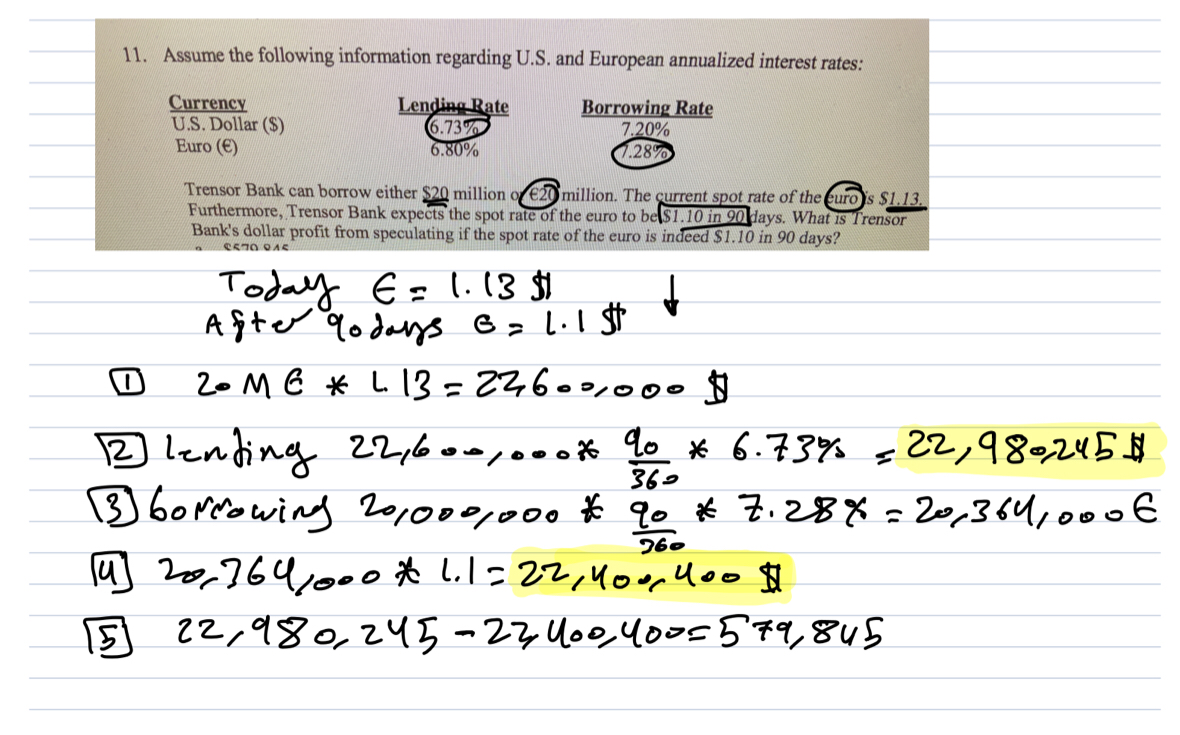 11. Assume the following information regarding U.S. and European annualized interest rates:
Currency Lending Rate Borrowing Rate
U.S. Dollar ($) 6.73% 7.20%
Euro (€) 6.80% 7.28%
Trensor Bank can borrow either $20 million or €20 million. The current spot rate of the euro is $1.13.
Furthermore, Trensor Bank expects the spot rate of the euro to be $1.10 in 90 days. What is Trensor
Bank's dollar profit from speculating if the spot rate of the euro is indeed $1.10 in 90 days?
Today € = 1.13 $ ↓
After 90 days € = 1.1 $
1 20 M € * 1.13 = 22,600,000 $
2 lending 22,600,000 * 90/360 * 6.73% = 22,980,245 $
3 borrowing 20,000,000 * 90/360 * 7.28% = 20,364,000 €
4 20,364,000 * 1.1 = 22,400,400 $
5 22,980,245 - 22,400,400 = 579,845